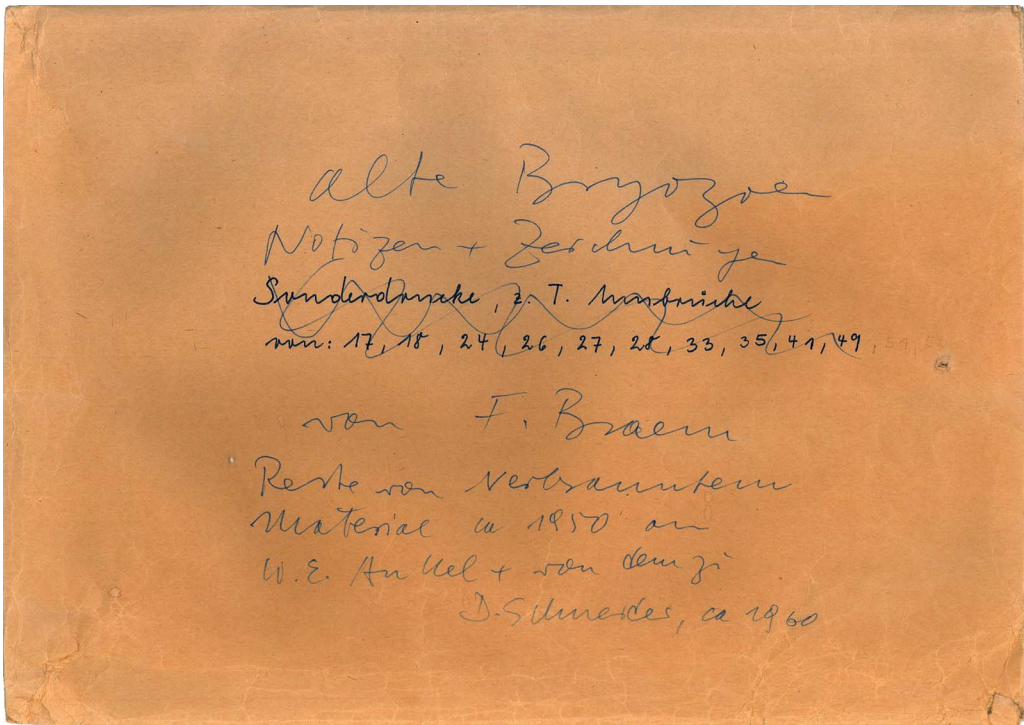 alte Bryozoen
Notizen + Zeichnungen
Sonderdrucke, z. T. Ausbrüche
von: 17, 18, 24, 26, 27, 28, 33, 35, 41, 49, 51, 5
von F. Braem
Reste von verbranntem
Material ca 1950 an
W. E. Ankel + von dem zu
D. Schneider, ca 1960